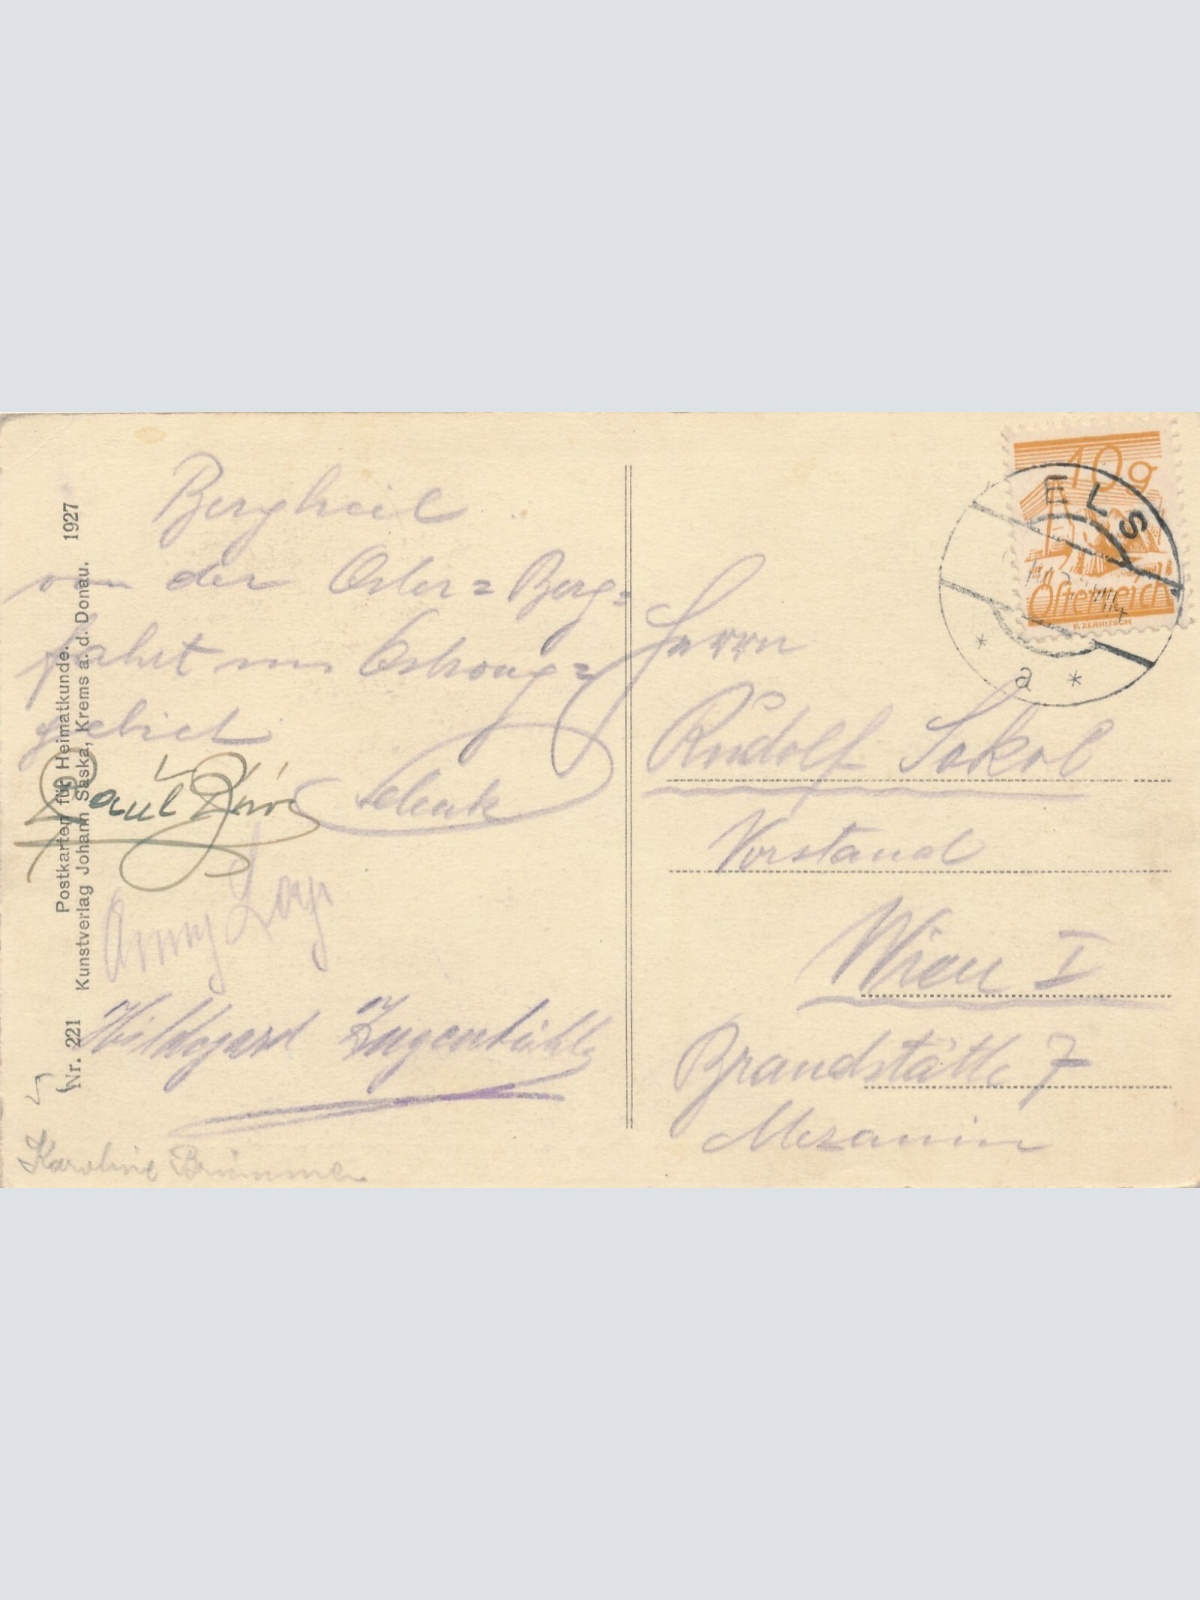 Bergheil
von der Oster=Berg=
fahrt im Ostrong=
gebiet
Schenk
Paul
Anny
Hildegard Zugenbühler
Karoline Brunner
Nr. 221
Postkarten für Heimatkunde.
Kunstverlag Johann Saska, Krems a. d. Donau.
1927
10g
Österreich
ELS
* a *
Herrn
Rudolf Sokol
Vorstand
Wien I
Brandstätte 7
Mezanin